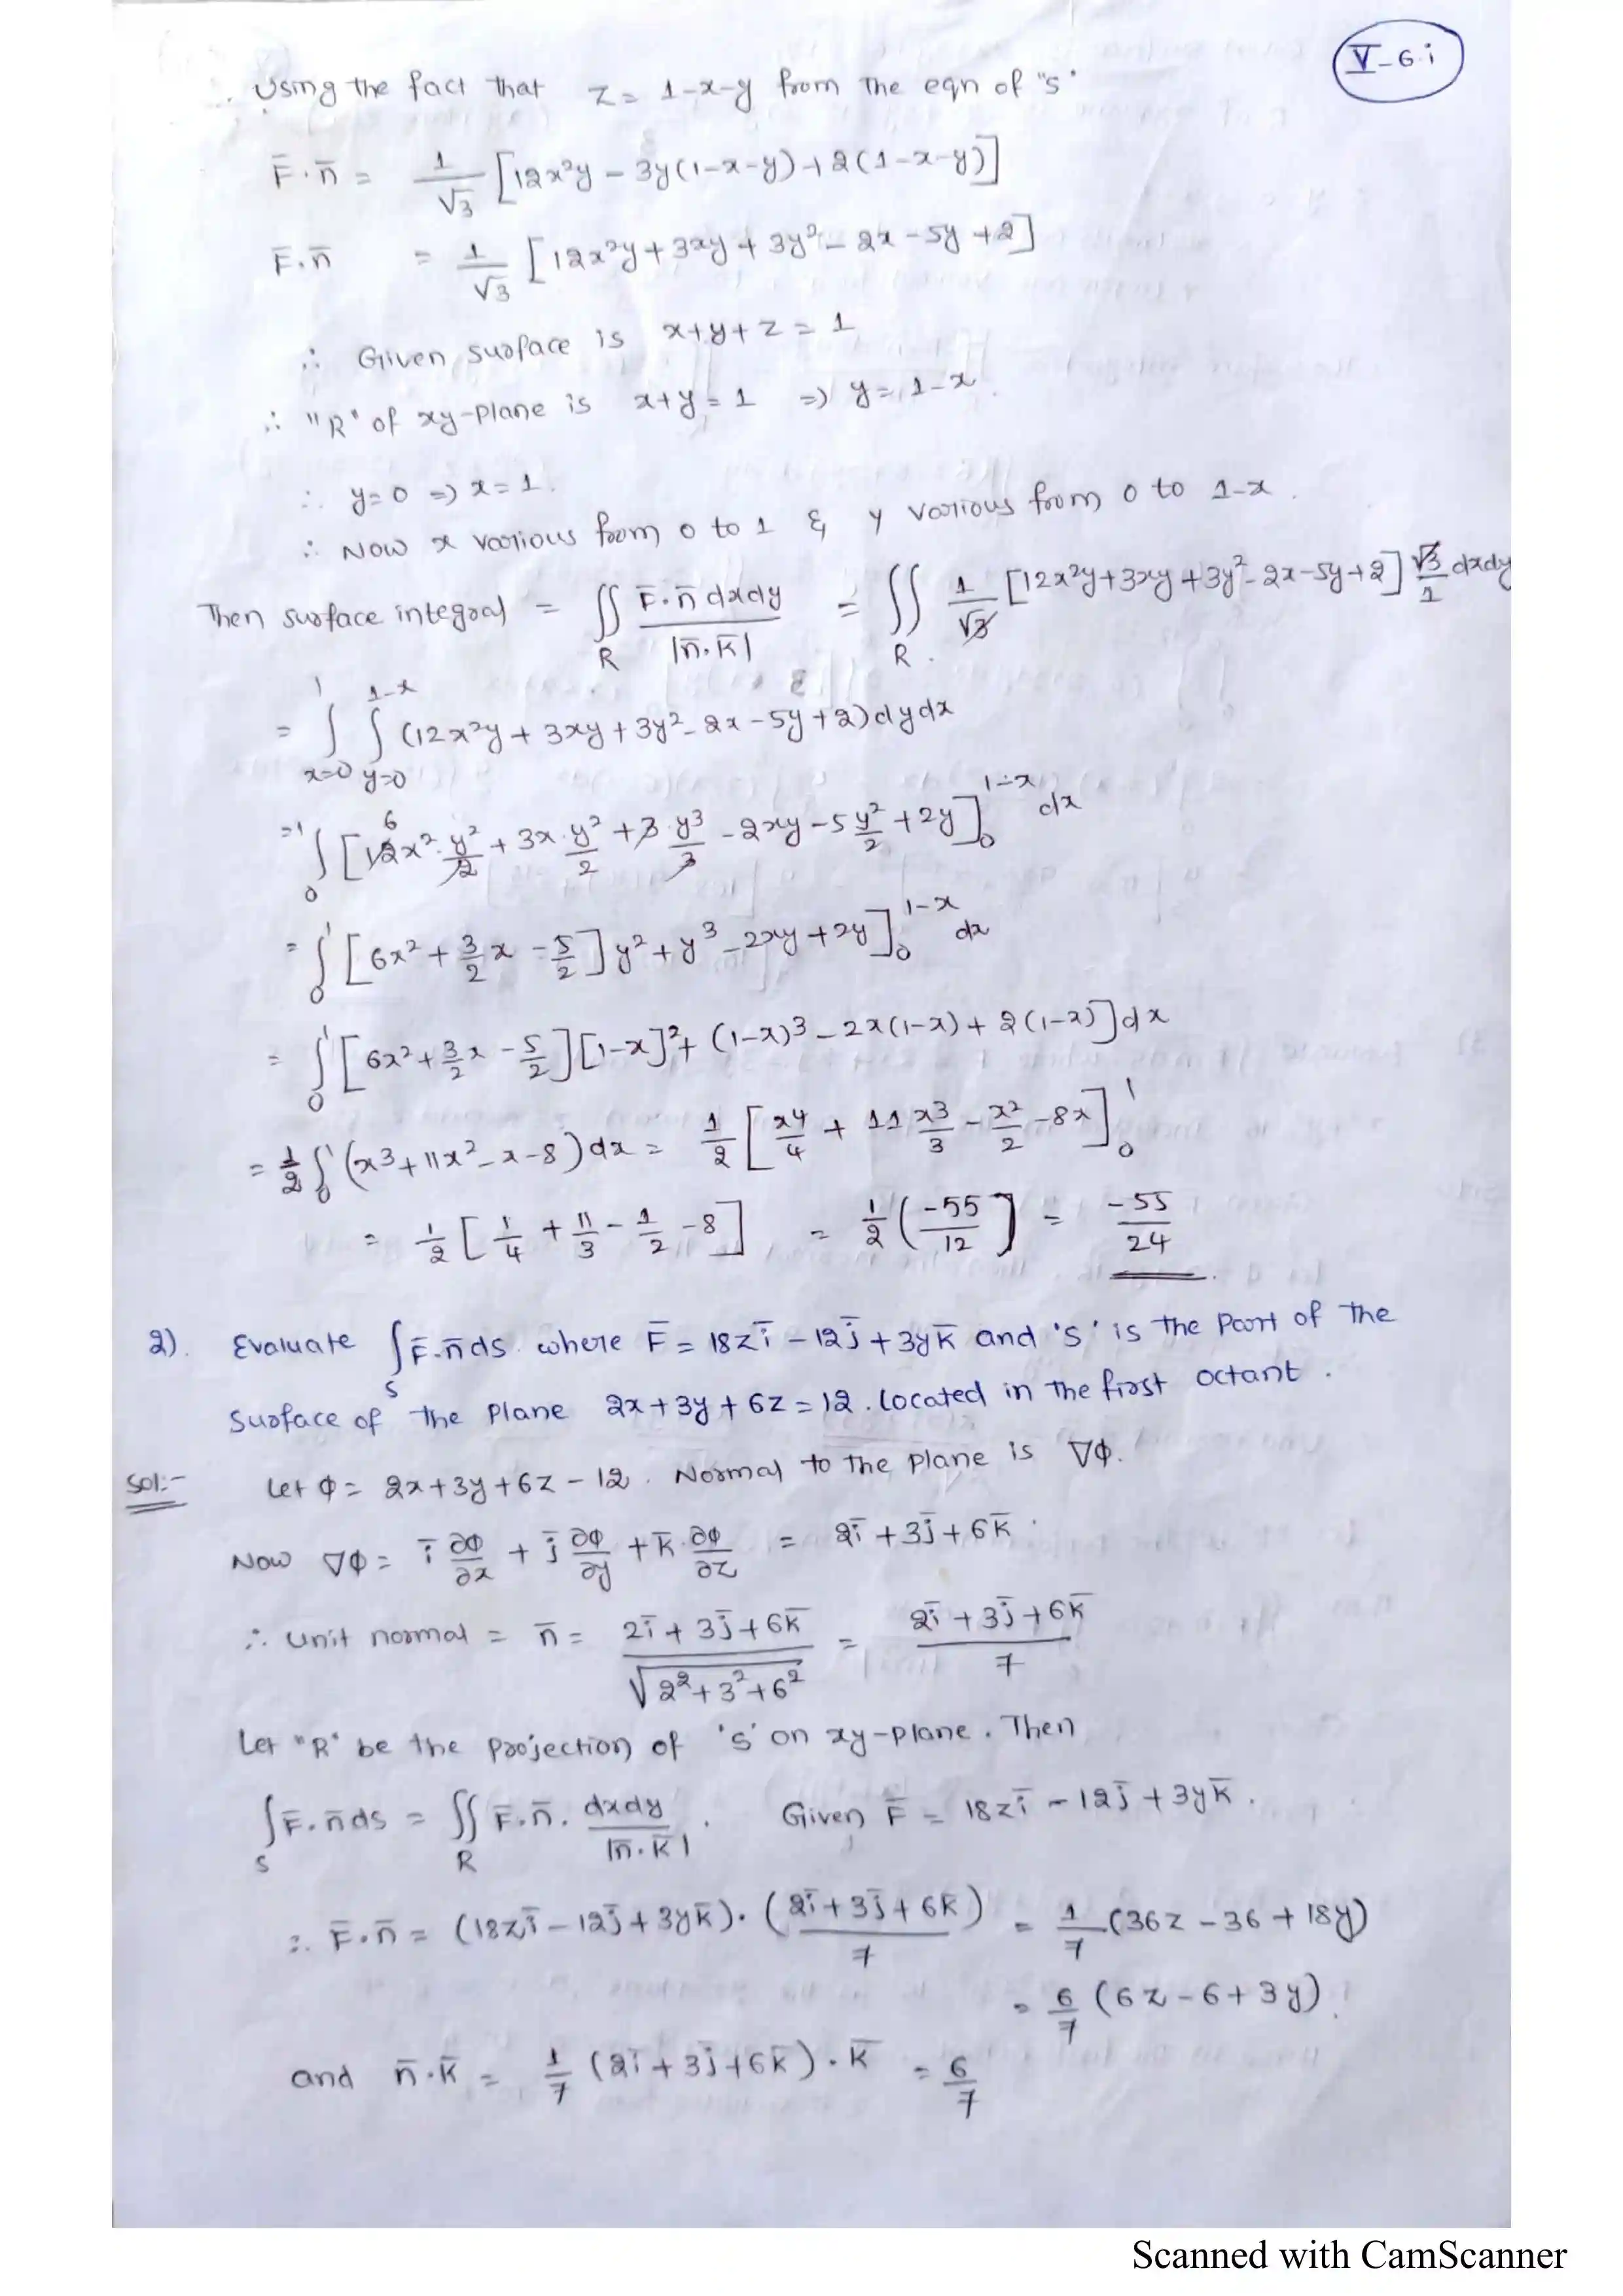 V-6.i
∴ Using the fact that z = 1-x-y from the eqn of "s"
F̄·n̄ = 1/√3 [12x²y - 3y(1-x-y) + 2(1-x-y)]
F̄·n̄ = 1/√3 [12x²y + 3xy + 3y² - 2x - 5y + 2]
∴ Given surface is x+y+z = 1
∴ "R" of xy-plane is x+y = 1 ⇒ y = 1-x.
∴ y=0 ⇒ x=1.
∴ Now x various from 0 to 1 & y various from 0 to 1-x.
Then surface integral = ∬_R F̄·n̄ dxdy/|n̄·k̄| = ∬_R 1/√3 [12x²y+3xy+3y²-2x-5y+2] √3/1 dxdy
= ∫_{x=0}^{1} ∫_{y=0}^{1-x} (12x²y + 3xy + 3y² - 2x - 5y + 2) dydx
= ∫_0^1 [12x²·y²/2 + 3x·y²/2 + 3·y³/3 - 2xy - 5y²/2 + 2y]_0^{1-x} dx
= ∫_0^1 [6x² + 3/2 x - 5/2] y² + y³ - 2xy + 2y]_0^{1-x} dx
= ∫_0^1 [6x² + 3/2 x - 5/2][1-x]² + (1-x)³ - 2x(1-x) + 2(1-x)] dx
= 1/2 ∫_0^1 (x³ + 11x² - x - 8) dx = 1/2 [x⁴/4 + 11 x³/3 - x²/2 - 8x]_0^1
= 1/2 [1/4 + 11/3 - 1/2 - 8] = 1/2 (-55/12] = -55/24
2). Evaluate ∫_S F̄·n̄ ds where F̄ = 18z ī - 12 j̄ + 3y k̄ and 's' is the part of the
surface of the plane 2x + 3y + 6z = 12. located in the first octant.
Sol:- Let ϕ = 2x + 3y + 6z - 12. Normal to the plane is ∇ϕ.
Now ∇ϕ = ī ∂ϕ/∂x + j̄ ∂ϕ/∂y + k̄·∂ϕ/∂z = 2ī + 3j̄ + 6k̄.
∴ unit normal = n̄ = 2ī + 3j̄ + 6k̄/√2²+3²+6² = 2ī + 3j̄ + 6k̄/7
Let "R" be the projection of 's' on xy-plane. Then
∫_S F̄·n̄ ds = ∬_R F̄·n̄. dxdy/|n̄·k̄|. Given F̄ = 18z ī - 12 j̄ + 3y k̄.
∴ F̄·n̄ = (18z ī - 12j̄ + 3y k̄)·(2ī + 3j̄ + 6k̄)/7 = 1/7 (36z - 36 + 18y)
= 6/7 (6z - 6 + 3y).
and n̄·k̄ = 1/7 (2ī + 3j̄ + 6k̄)·k̄ = 6/7
Scanned with CamScanner